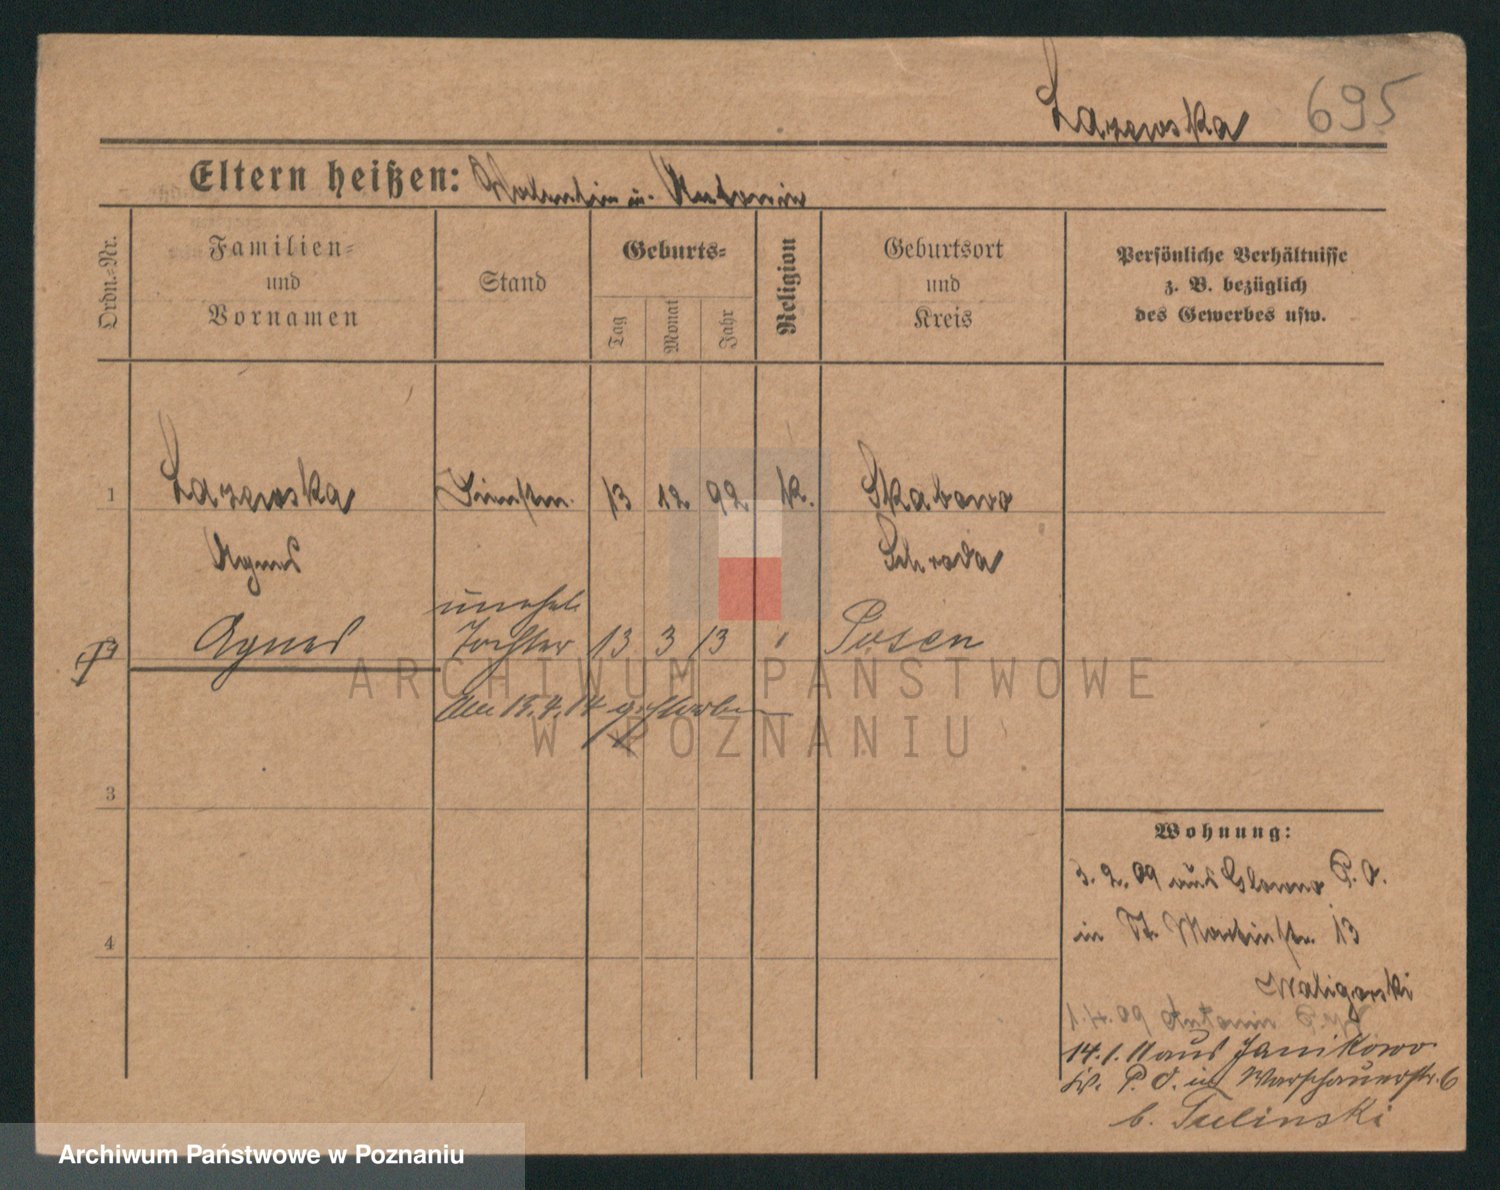 Lazewska 695
Eltern heißen: Valentin u. Antonie
Ordn.=Nr.
Familien=
und
Vornamen
Stand
Geburts=
Tag
Monat
Jahr
Religion
Geburtsort
und
Kreis
Persönliche Verhältnisse
z. B. bezüglich
des Gewerbes usw.
1 Lazewska Dienstm. 13 12 92 k. Skabowo
Agnes Schroda
unehel.
Agnes Tochter 13 3 13 " Posen
Am 15.4.14 gestorben
3
4
Wohnung:
3.2.09 aus Glowno P. O.
in St. Martinstr. 13
Waligorski
1.4.09 Antonin P.
14.1.11 aus Janikowo
Kr. P. O. in Warschauerstr. 6
b. Tulinski
ARCHIWUM PAŃSTWOWE
W POZNANIU
Archiwum Państwowe w Poznaniu